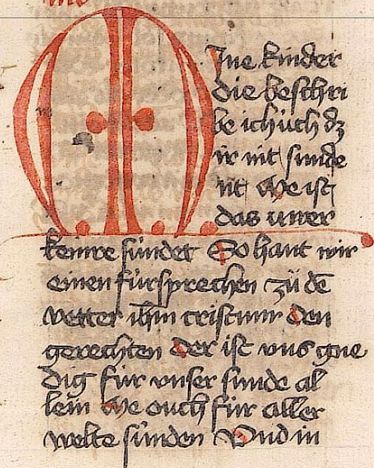 MIne kinder
die beschri
be ich üch dz
ir nit sunde
nt We ist
das uwer
keinre sündet So hant wir
einen fürsprechen zü dē
vetter ihm cristum den
gerechten der ist vns gne
dig für vnser sunde al
lein We ouch für aller
welte sünden Vnd in